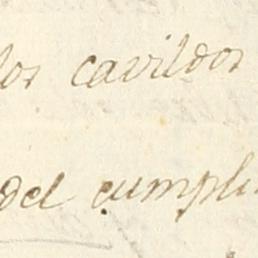 los cavildos
del cumpli